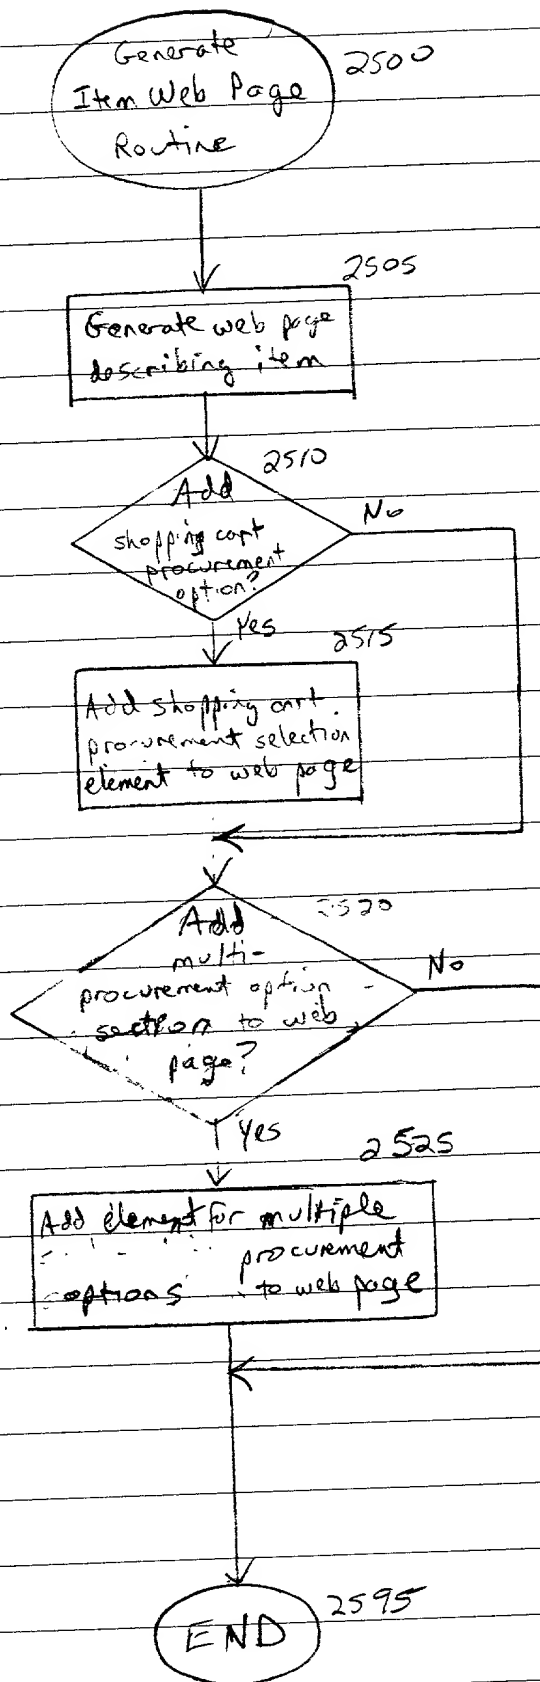 Generate
Item Web Page
Routine
2500
2505
Generate web page
describing item
2510
Add
shopping cart
procurement
option?
No
Yes
2515
Add shopping cart
procurement selection
element to web page
2520
Add
multi-
procurement option
section to web
page?
No
Yes
2525
Add element for multiple
procurement
options to web page
END
2595